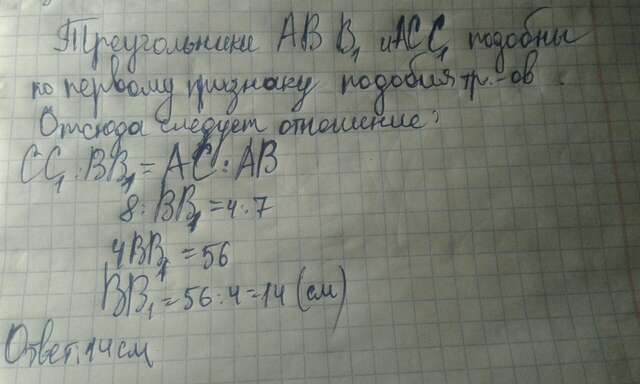 Треугольники ABB₁ и ACC₁ подобны
по первому признаку подобия тр.-ов.
Отсюда следует отношение:
CC₁:BB₁=AC:AB
8:BB₁=4:7
4BB₁=56
BB₁=56:4=14 (см)
Ответ: 14 см